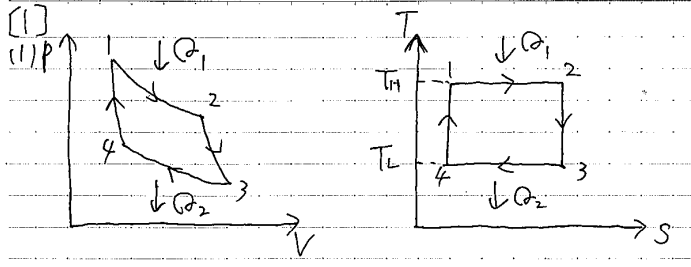 [1]
(1) P
1
↓Q₁
2
4
3
↓Q₂
V
T
↓Q₁
T_H
1
2
T_L
4
3
↓Q₂
S